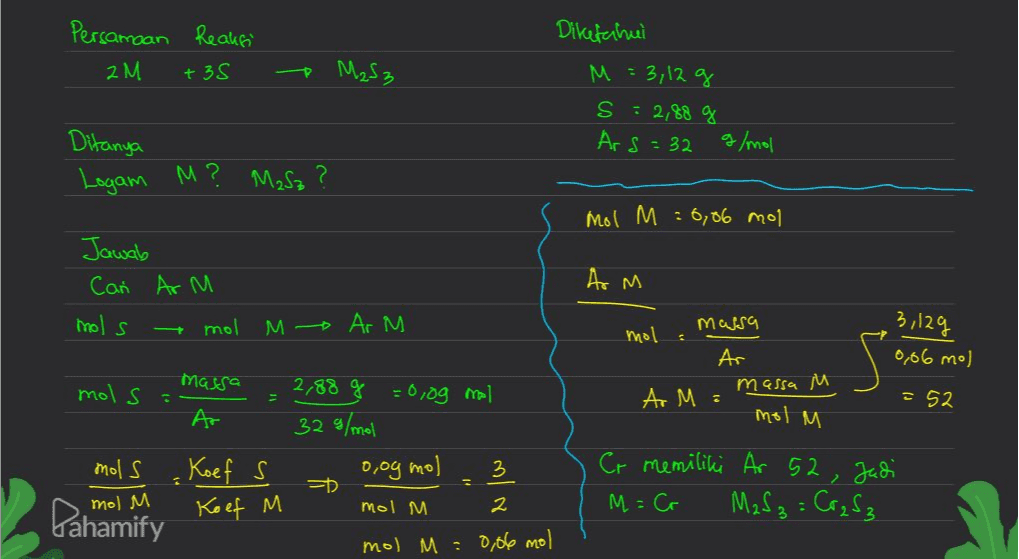 Persamaan Reaksi
2M + 3S → M₂S₃
Ditanya
Logam M? M₂S₃?
Jawab
Cari Ar M
mol S → mol M → Ar M
mol S = massa / Ar = 2,88 g / 32 g/mol = 0,09 mol
mol S / mol M = Koef S / Koef M ⇒ 0,09 mol / mol M = 3 / 2
mol M = 0,06 mol
Diketahui
M = 3,12 g
S = 2,88 g
Ar S = 32 g/mol
Mol M = 0,06 mol
Ar M
mol = massa / Ar
Ar M = massa M / mol M → 3,12 g / 0,06 mol
= 52
Cr memiliki Ar 52, Jadi
M = Cr M₂S₃ = Cr₂S₃
Pahamify